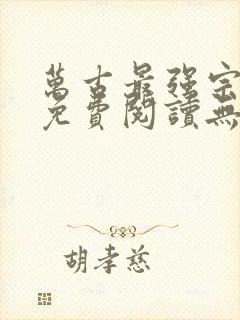 萬古最强宗
免費閱讀無
胡孝慈